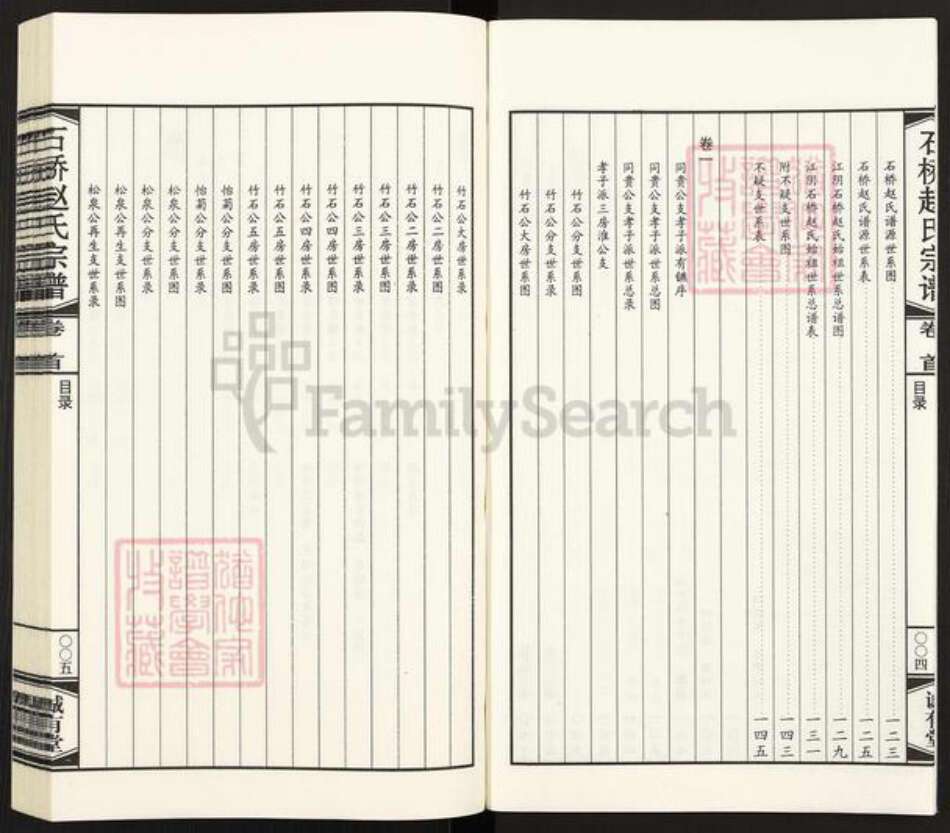 石桥赵氏宗谱 卷首 目录 〇〇四
石桥赵氏谱源世系图 一二三
石桥赵氏谱源世系表 一二五
江阴石桥赵氏始祖世系总谱图 一二九
江阴石桥赵氏始祖世系总谱表 一三一
附不疑支世系图 一四三
不疑支世系表 一四五
卷一
同贵公支孝子派有钿序
同贵公支孝子派世系总图
同贵公支孝子派世系总录
孝子派三房淮公支
竹石公分支世系图
竹石公分支世系录
竹石公大房世系图
竹石公大房世系录
竹石公二房世系图
竹石公二房世系录
竹石公三房世系图
竹石公三房世系录
竹石公四房世系图
竹石公四房世系录
竹石公五房世系图
竹石公五房世系录
怡菊公分支世系图
怡菊公分支世系录
松泉公分支世系图
松泉公分支世系录
松泉公再生支世系图
松泉公再生支世系录
石桥赵氏宗谱 卷首 目录 〇〇五 诚有堂
FamilySearch
收藏
谱学会